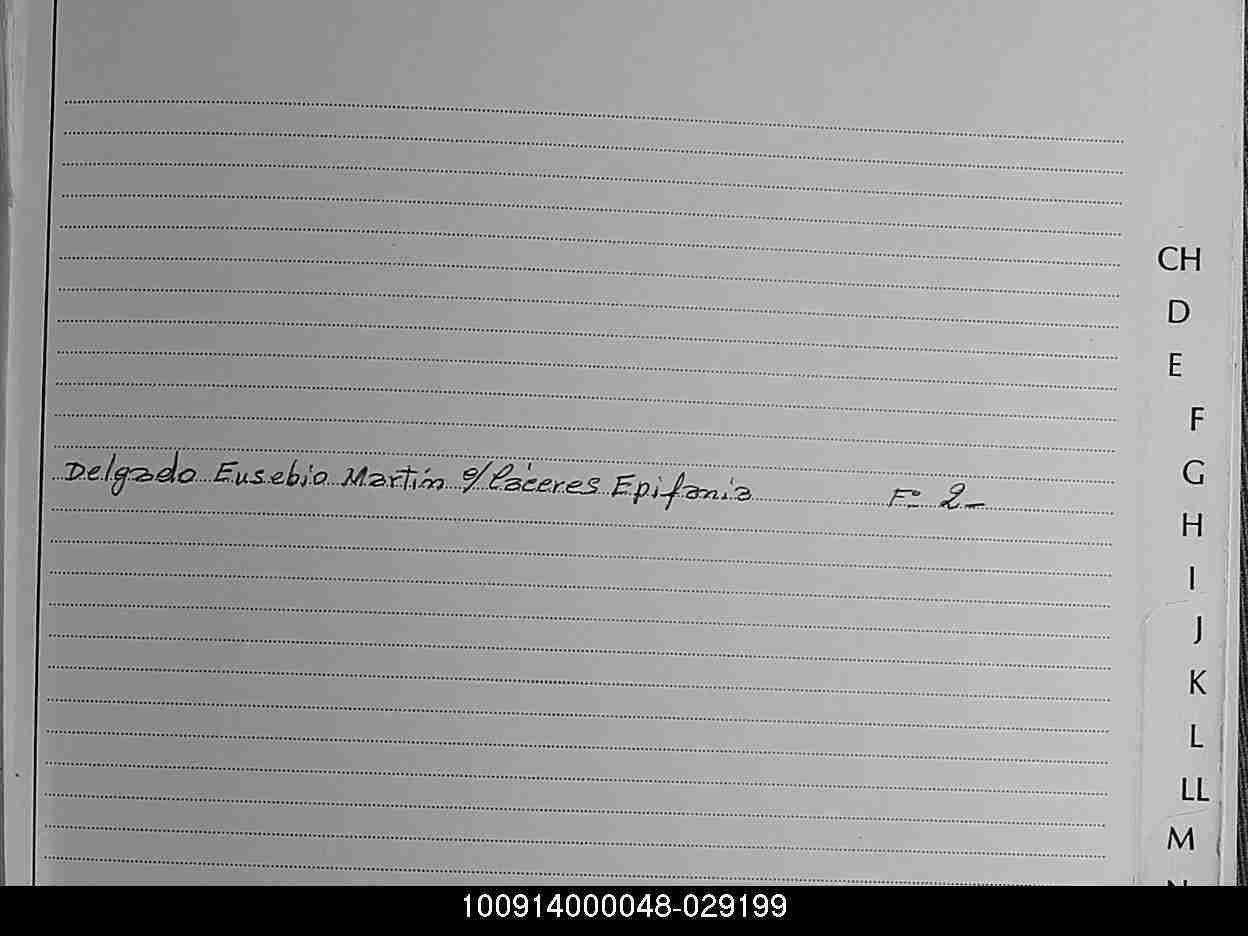 CH
D
E
F
G
Delgado Eusebio Martín c/ Cáceres Epifania F: 2-
H
I
J
K
L
LL
M
100914000048-029199